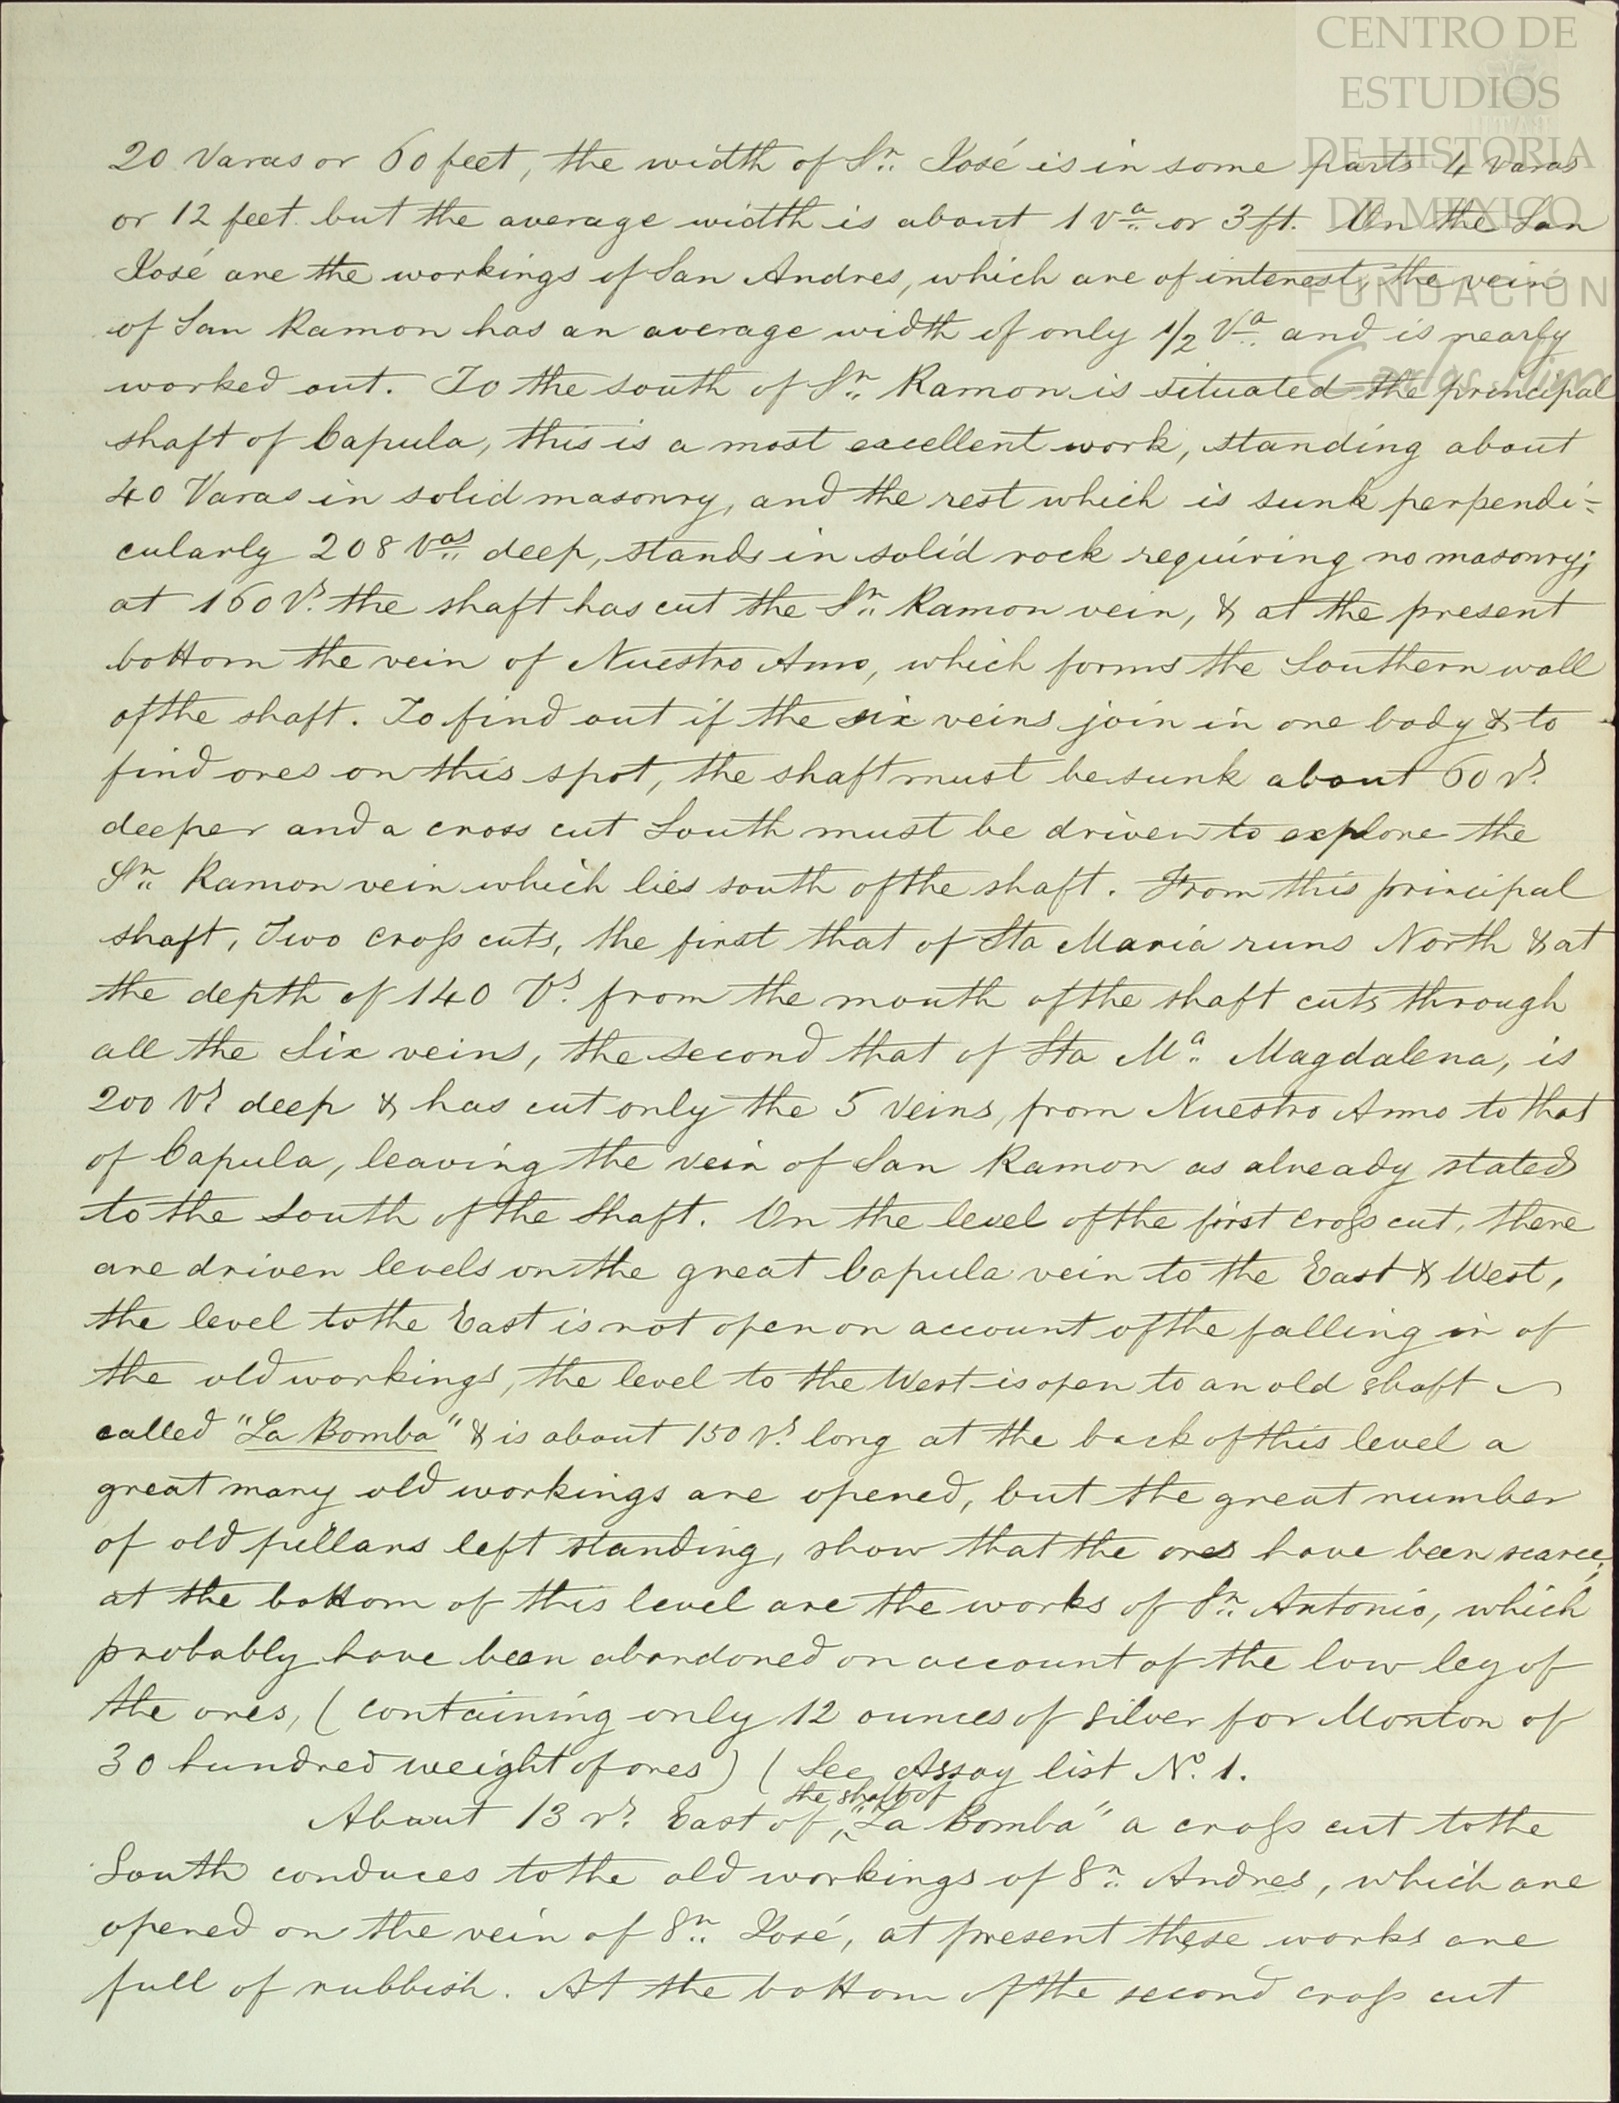 CENTRO DE
ESTUDIOS
DE HISTORIA
DE MEXICO
FUNDACIÓN
Carlos Slim
20 Varas or 60 feet, the width of Sn. José is in some parts 4 varas
or 12 feet but the average width is about 1 va. or 3 ft. On the San
José are the workings of San Andres, which are of interest, the vein
of San Ramon has an average width of only 1/2 Va. and is nearly
worked out. To the south of Sn. Ramon is situated the principal
shaft of Capula, this is a most excellent work, standing about
40 Varas in solid masonry, and the rest which is sunk perpendi=
cularly 208 Vas. deep, stands in solid rock requiring no masonry;
at 160 Vs. the shaft has cut the Sn. Ramon vein, & at the present
bottom the vein of Nuestro Amo, which forms the Southern wall
of the shaft. To find out if the six veins join in one body & to
find ores on this spot, the shaft must be sunk about 60 vs.
deeper and a cross cut South must be driven to explore the
Sn. Ramon vein which lies south of the shaft. From this principal
shaft, Two croſs cuts, the first that of Sta Maria runs North & at
the depth of 140 Vs. from the mouth of the shaft cuts through
all the Six veins, the second that of Sta Ma. Magdalena, is
200 Vs. deep & has cut only the 5 Veins, from Nuestro Amo to that
of Capula, leaving the vein of San Ramon as already stated
to the South of the Shaft. On the level of the first croſs cut, there
are driven levels on the great Capula vein to the East & West,
the level to the East is not open on account of the falling in of
the old workings, the level to the West is open to an old shaft
called "La Bomba" & is about 150 Vs. long at the back of this level a
great many old workings are opened, but the great number
of old pillars left standing, show that the ores have been scarce;
at the bottom of this level are the works of Sn. Antonio, which
probably have been abandoned on account of the low ley of
the ores, (containing only 12 ounces of Silver for Monton of
30 hundred weight of ores) (See Assay list No. 1.
the shaft of
About 13 vs. East of "La Bomba" a croſs cut to the
South conduces to the old workings of Sn. Andres, which are
opened on the vein of Sn. José, at present these works are
full of rubbish. At the bottom of the second croſs cut